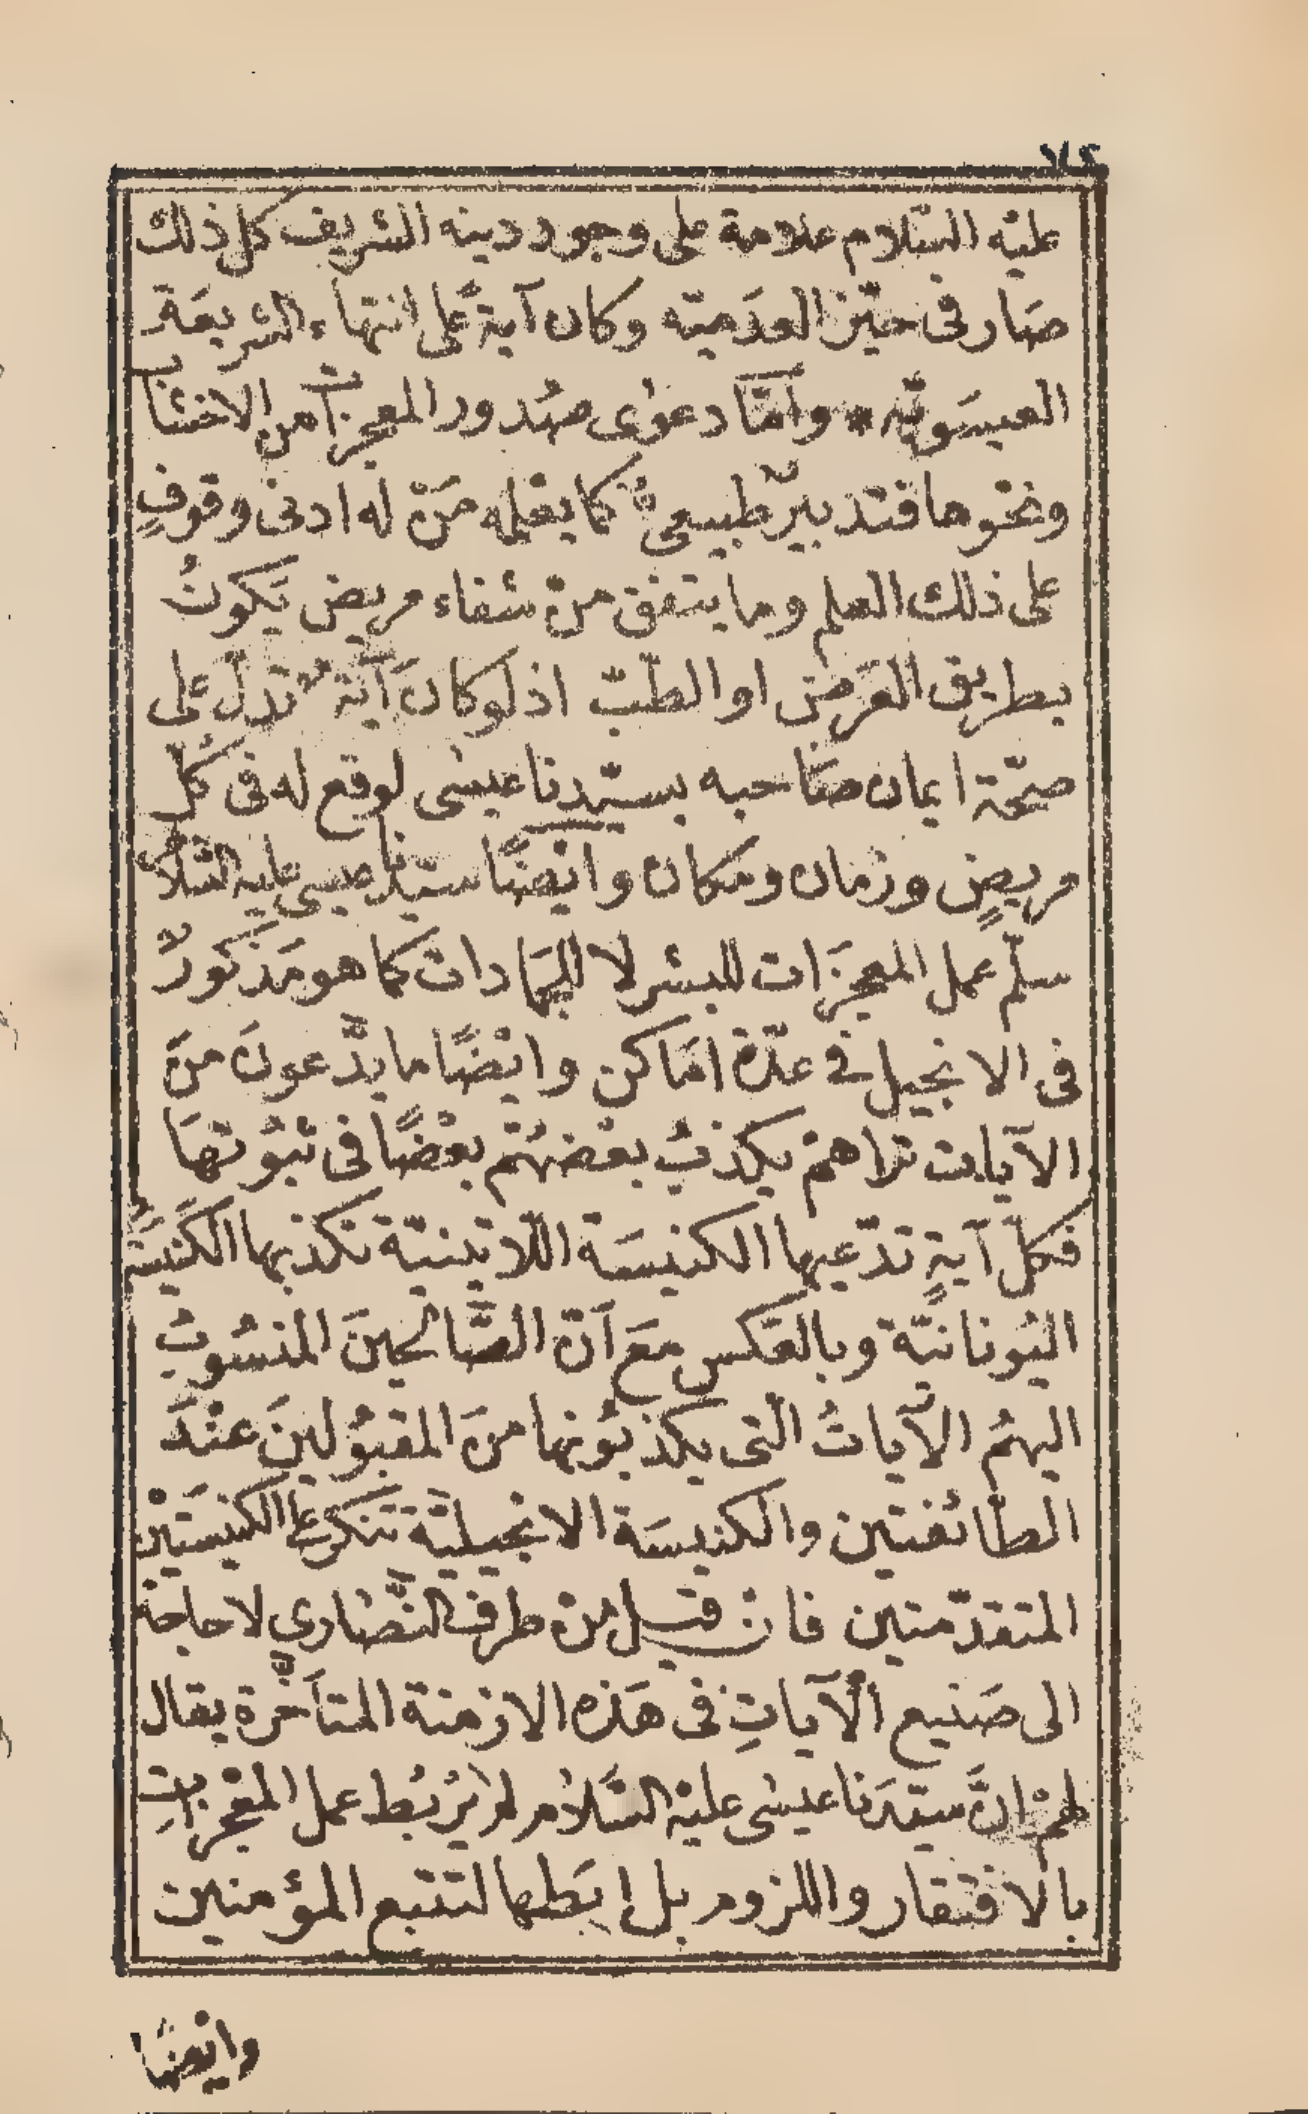 ٧٢
عليْه السّلام علامة على وجود دينه الشريف كل ذلك
صَار فى حيّز العدَميّه وكان آية عَلى انتهاء الشريعَة
العيسَويّه * وأمّا دعوٰى صُدور المعجزات من الاخشاب
ونحْوها فتدبيرٌ طبيعىٌ كما يعْلمه مَنْ له ادنى وقوفٍ
على ذلك العلم وما يتفق منْ شفاء مريض يَكونُ
بطريق العَرَض او الطبّ اذ لوكانَ آيَةً تدلّ على
صحّة ايمان صَاحبه بسيّدنا عيسٰى لوقع له فى كُل
مريضٍ وزمان ومكان وايْضًا سيّدنا عيسى عليه السّلام
سلّم عمل المعجزَات للبشر لا للجمَادات كما هو مَذكورٌ
فى الانجيل في عدّة امَاكن وايْضًا ما يدَّعونَ منَ
الآيات تراهمْ يكذبُ بعْضهُمْ بعْضًا فى ثبُوتهَا
فكلّ آيةٍ تدّعيها الكنيسَة اللّاتينيّة تكذبها الكَنيسَة
اليُونانيّة وبالعَكس مَعَ أنّ الصَّالحينَ المنسُوبُ
اليهمُ الآياتُ الّتى يكذبُونها منَ المقبُولينَ عنْدَ
الطّائفتين والكنيسَة الانجيليَّة تنكر على الكنيسَتيْن
المتقدّمتين فانْ قيل منْ طرف النَّصَارى لا حاجة
الى صَنيع الآياتِ فى هَذه الازمنة المتأخَّرة يقال
لهمْ انَّ سيّدَنا عيسٰى عليْه السَّلام لم يرْبُط عمل المعْجزاتِ
بالافتقار واللزوم بل ابَطها لتتبع المؤمنين
وايْضًا